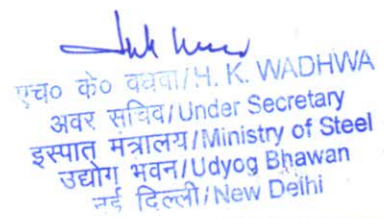 एच० के० वधवा/H. K. WADHWA
अवर सचिव/Under Secretary
इस्पात मंत्रालय/Ministry of Steel
उद्योग भवन/Udyog Bhawan
नई दिल्ली/New Delhi